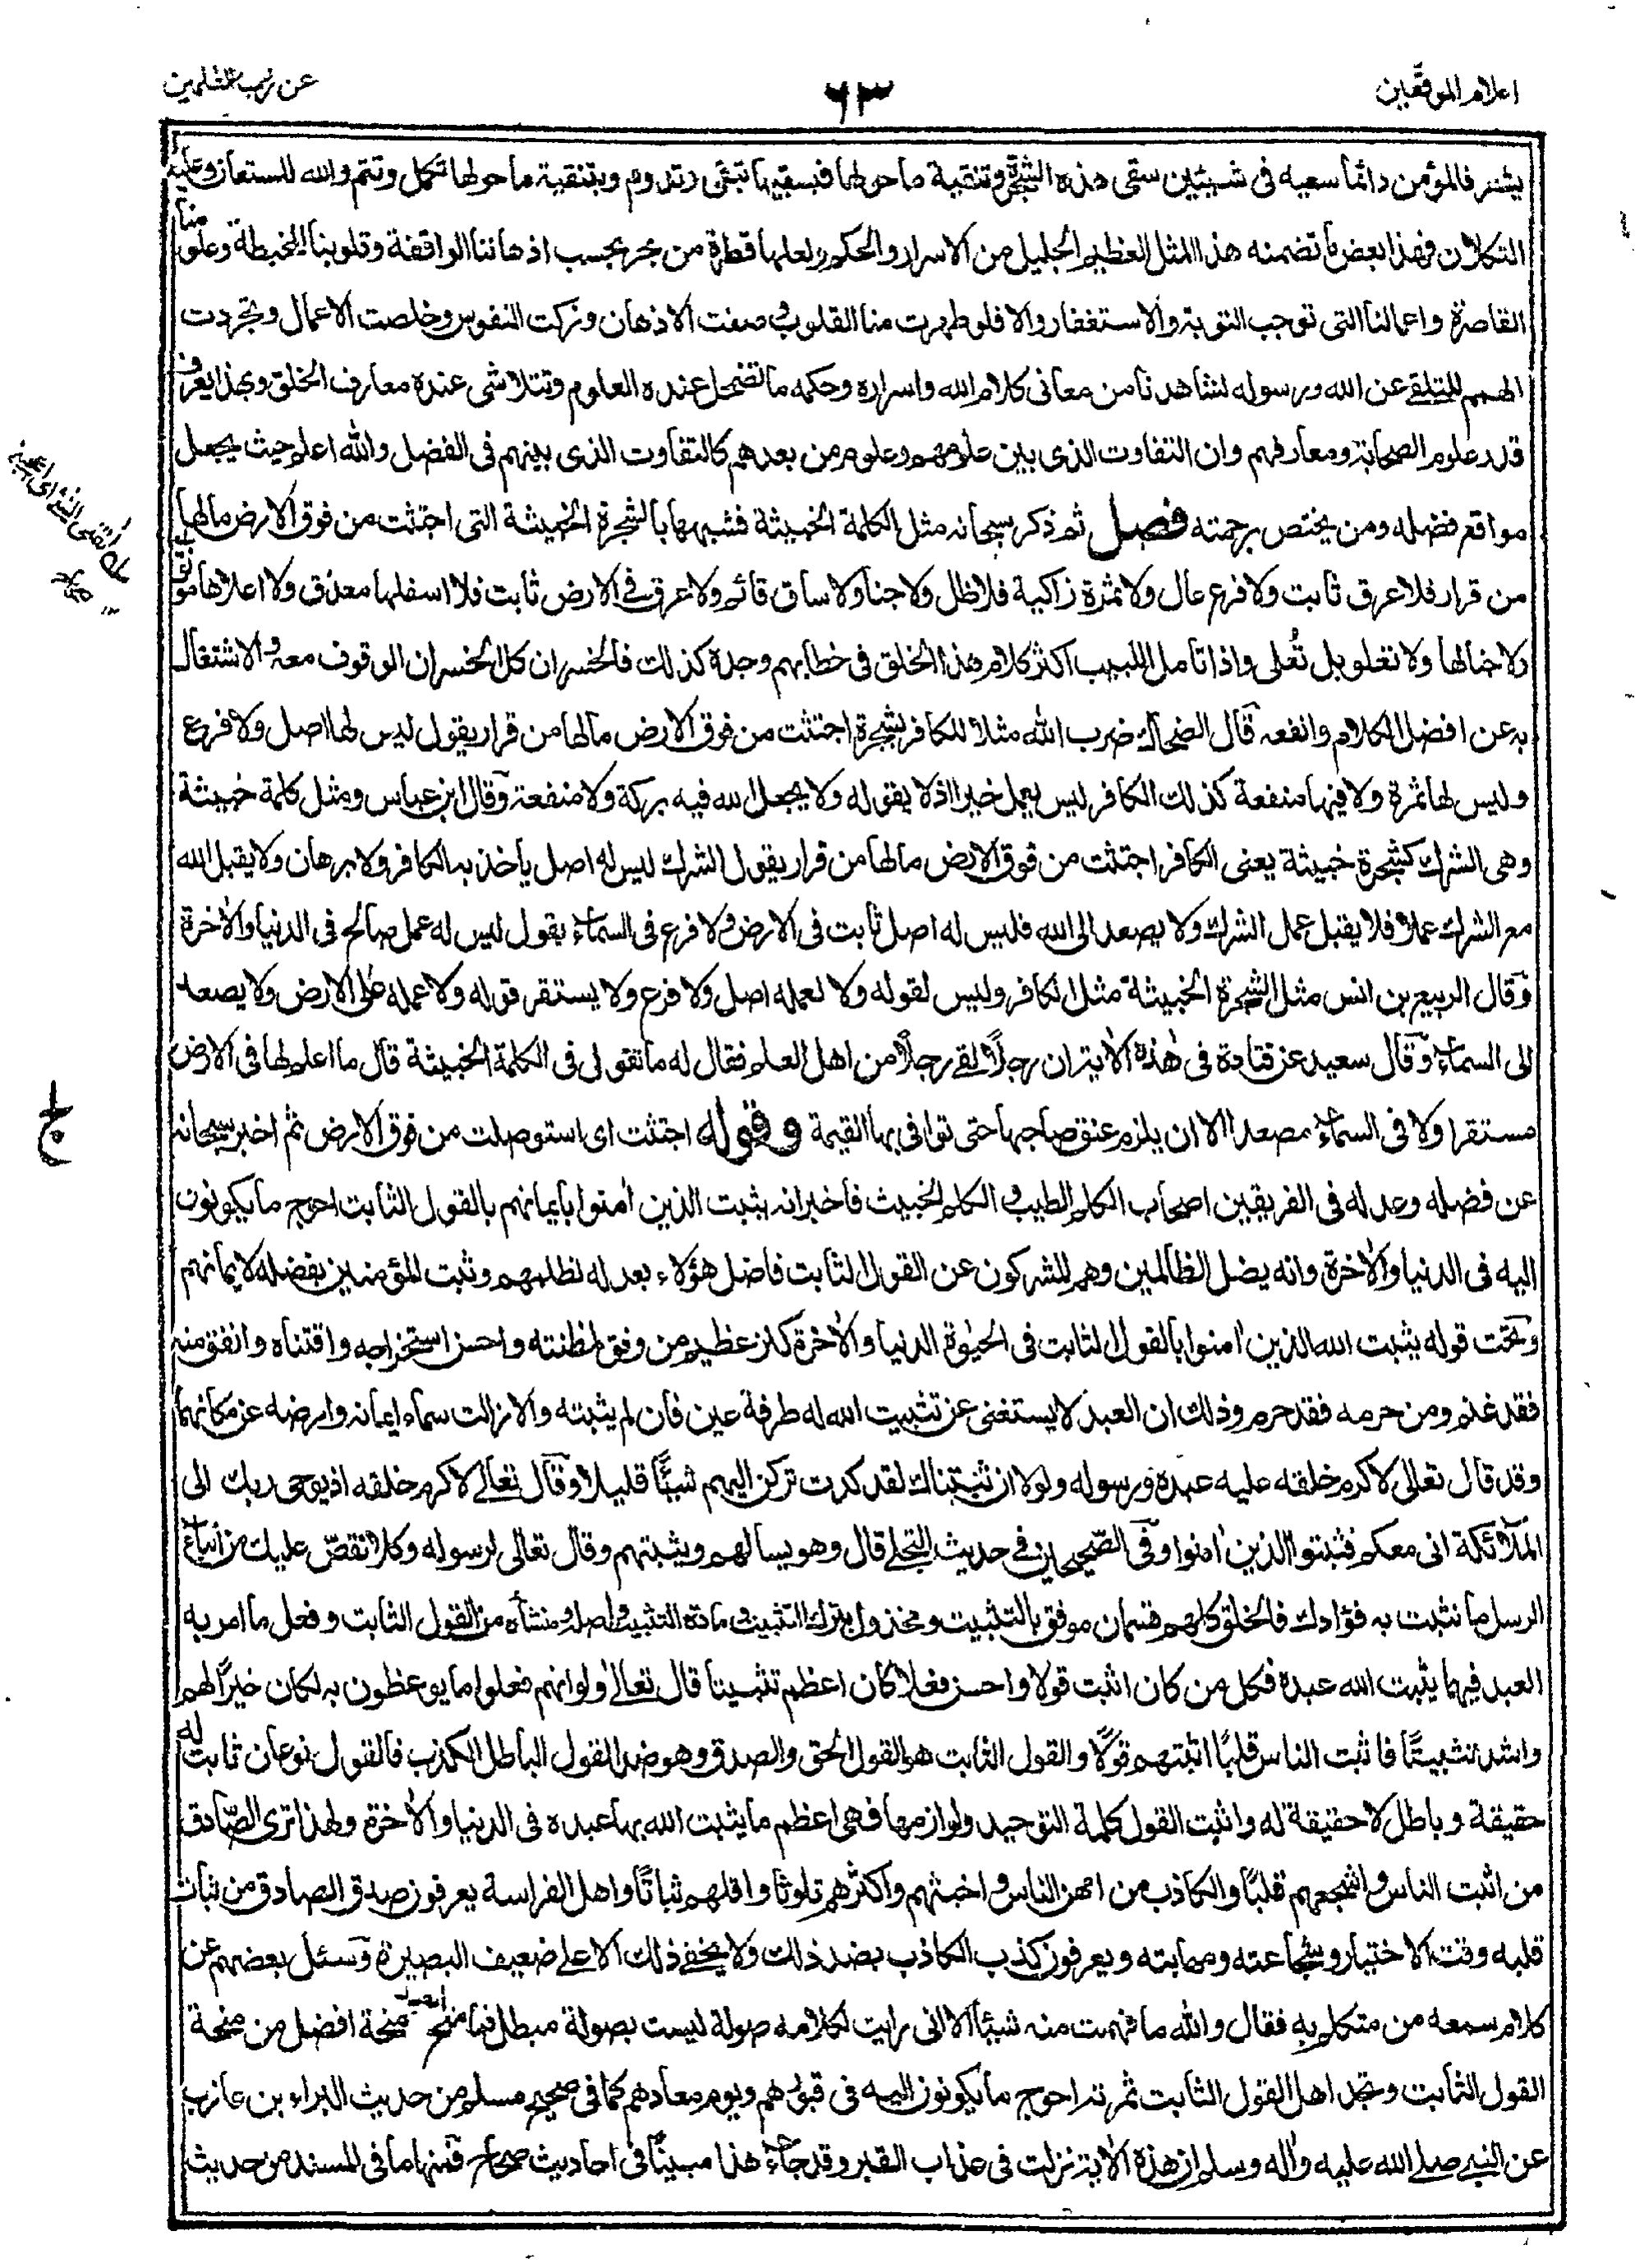 اعلام الموقّعين
٦٣
عن رب العٰلمين
يشعر فالمؤمن دائما سعيه فى شيئين سقى هذه الشجرة وتنقية ما حولها فبسقيها تبقى وتدوم وبتنقية ما حولها تكمل وتتم والله المستعان وعليه
التكلان فهذا بعض ما تضمنه هذا المثل العظيم الجليل من الاسرار والحكم ولعلها قطرة من بحر بحسب اذهاننا الواقفة وقلوبنا المخبطة وعلومنا
القاصرة واعمالنا التى توجب التوبة والاستغفار والا فلو طهرت منا القلوب وصفت الاذهان وزكت النفوس وخلصت الاعمال وتجردت
الهمم للتلقے عن الله ورسوله لشاهدنا من معانى كلام الله واسراره وحكمه ما تضمحل عنده العلوم وتتلاشى عنده معارف الخلق وبهذا يعرف
قدر علوم الصحابة ومعارفهم وان التفاوت الذى بين علومهم وعلوم من بعدهم كالتفاوت الذى بينهم فى الفضل والله اعلم حيث يجعل
مواقع فضله ومن يختص برحمته فصل ثم ذكر سبحانه مثل الكلمة الخبيثة فشبهها بالشجرة الخبيثة التى اجتثت من فوق الارض مالها
من قرار فلا عرق ثابت ولا فرع عال ولا ثمرة زاكية فلا ظل ولا جنا ولا ساق قائم ولا عرق فے الارض ثابت فلا اسفلها معذق ولا اعلاها مونق
ولا جنا لها ولا تعلو بل تُعلى واذا تامل اللبيب اكثر كلام هذا الخلق فى خطابهم وجده كذلك فالخسران كل الخسران الوقوف معه والاشتغال
به عن افضل الكلام وانفعه قال الضحاك ضرب الله مثلا للكافر بشجرة اجتثت من فوق الارض مالها من قرار يقول ليس لها اصل ولا فرع
وليس لها ثمرة ولا فيها منفعة كذلك الكافر ليس يعمل خيرا ولا يقوله ولا يجعل الله فيه بركة ولا منفعة وقال ابن عباس ومثل كلمة خبيثة
وهى الشرك كشجرة خبيثة يعنى الكافر اجتثت من فوق الارض مالها من قرار يقول الشرك ليس له اصل ياخذ به الكافر ولا برهان ولا يقبل الله
مع الشرك عملا فلا يقبل عمل الشرك ولا يصعد الى الله فليس له اصل ثابت فى الارض ولا فرع فى السماء يقول ليس له عمل صالح فى الدنيا والاٰخرة
وقال الربيع بن انس مثل الشجرة الخبيثة مثل الكافر وليس لقوله ولا لعمله اصل ولا فرع ولا يستقر قوله ولا عمله على الارض ولا يصعد
الى السماء وقال سعيد عن قتادة فى هذه الاٰية ان رجلًا لقے رجلًا من اهل العلم فقال له ما تقول فى الكلمة الخبيثة قال ما اعلم لها فى الارض
مستقرا ولا فى السماء مصعدا الا ان يلزم عنق صاحبها حتى توافى بها القيمة وقوله اجتثت اى استوصلت من فوق الارض ثم اخبر سبحانه
عن فضله وعدله فى الفريقين اصحاب الكلم الطيب والكلم الخبيث فاخبر انه يثبت الذين اٰمنوا بايمانهم بالقول الثابت احوج ما يكونون
اليه فى الدنيا والاٰخرة وانه يضل الظالمين وهم المشركون عن القول الثابت فاضل هؤلاء بعدله لظلمهم وثبت المؤمنين بفضله لايمانهم
وتحت قوله يثبت الله الذين اٰمنوا بالقول الثابت فى الحيٰوة الدنيا والاٰخرة كنز عظيم من وفق لمظنته واحسن استخراجه واقتناه وانفق منه
فقد غنم ومن حرمه فقد حرم وذلك ان العبد لا يستغنى عن تثبيت الله له طرفة عين فان لم يثبته والا زالت سماء ايمانه وارضه عن مكانهما
وقد قال تعالى لاكرم خلقه عليه عبده ورسوله ولولا ان ثبتناك لقد كدت تركن اليهم شيئًا قليلا وقال تعالے لاكرم خلقه اذ يوحى ربك الى
الملٰٓئكة انى معكم فثبتوا الذين اٰمنوا وفى الصّحيحين فے حديث التجلے قال وهو يسالهم ويثبتهم وقال تعالى لرسوله وكلا نقصّ عليك من انباء
الرسل ما نثبت به فؤادك فالخلق كلهم قسمان موفق بالتثبيت ومخذول بترك التثبيت ومادة التثبيت اصله ومنشأه من القول الثابت وفعل ما امر به
العبد فبهما يثبت الله عبده فكل من كان اثبت قولا واحسن فعلا كان اعظم تثبيتا قال تعالےٰ ولو انهم فعلوا ما يوعظون به لكان خيرًا لهم
واشد تثبيتًا فاثبت الناس قلبًا اثبتهم قولًا والقول الثابت هو القول الحق والصدق وهو ضد القول الباطل الكذب فالقول نوعان ثابت له
حقيقة وباطل لا حقيقة له واثبت القول كلمة التوحيد ولوازمها فهى اعظم ما يثبت الله بها عبده فى الدنيا والاٰخرة ولهذا ترى الصّادق
من اثبت الناس واشجعهم قلبًا والكاذب من امهن الناس واخبثهم واكثرهم تلوثا واقلهم ثباتًا واهل الفراسة يعرفون صدق الصادق من ثبات
قلبه وقت الاختبار وشجاعته ومهابته ويعرفون كذب الكاذب بضد ذلك ولا يخفے ذلك الا علے ضعيف البصيرة وسئل بعضهم عن
كلام سمعه من متكلم به فقال والله ما فهمت منه شيئا الا انى رايت لكلامه صولة ليست بصولة مبطل فما منح العبد منحة افضل من منحة
القول الثابت وتجد اهل القول الثابت ثمرته احوج ما يكونون اليه فى قبورهم ويوم معادهم كما فى صحيح مسلم من حديث البراء بن عازب
عن النبے صلے الله عليه واٰله وسلم ان هذه الاٰية نزلت فى عذاب القبر وقد جاء هذا مبينًا فى احاديث صحاح فمنها ما فى المسند من حديث